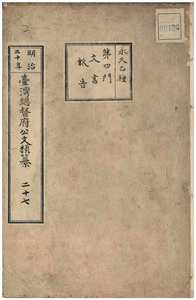 永久乙種
第四門
文書
報告
明治
三十年
臺灣總督府公文類纂
二十七